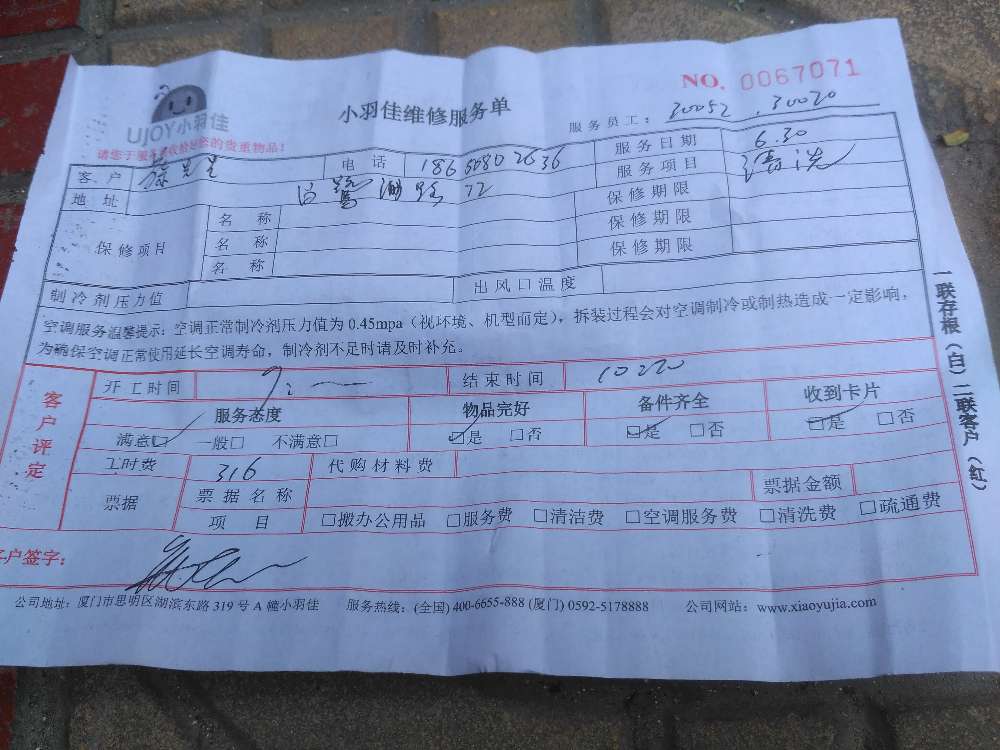 NO. 0067071
UJOY小羽佳
小羽佳维修服务单
服务员工: 30052 .30020
请您于服务前收拾好您的贵重物品!
客户 电话 服务日期 6.30
服务项目 清洗
地址 白鹭洲路 72
保修期限
保修项目 名称 保修期限
名称 保修期限
名称
制冷剂压力值 出风口温度
空调服务温馨提示: 空调正常制冷剂压力值为 0.45mpa (视环境、机型而定), 拆装过程会对空调制冷或制热造成一定影响,
为确保空调正常使用延长空调寿命, 制冷剂不足时请及时补充。
客户评定
开工时间 结束时间
服务态度 物品完好 备件齐全 收到卡片
满意□ 一般□ 不满意□ □是 □否 □是 □否 □是 □否
工时费 316 代购材料费
票据 票据名称 票据金额
项目 □搬办公用品 □服务费 □清洁费 □空调服务费 □清洗费 □疏通费
客户签字:
公司地址: 厦门市思明区湖滨东路 319 号 A 幢小羽佳 服务热线: (全国) 400-6655-888 (厦门) 0592-5178888 公司网站: www.xiaoyujia.com
一联存根(白)二联客户(红)